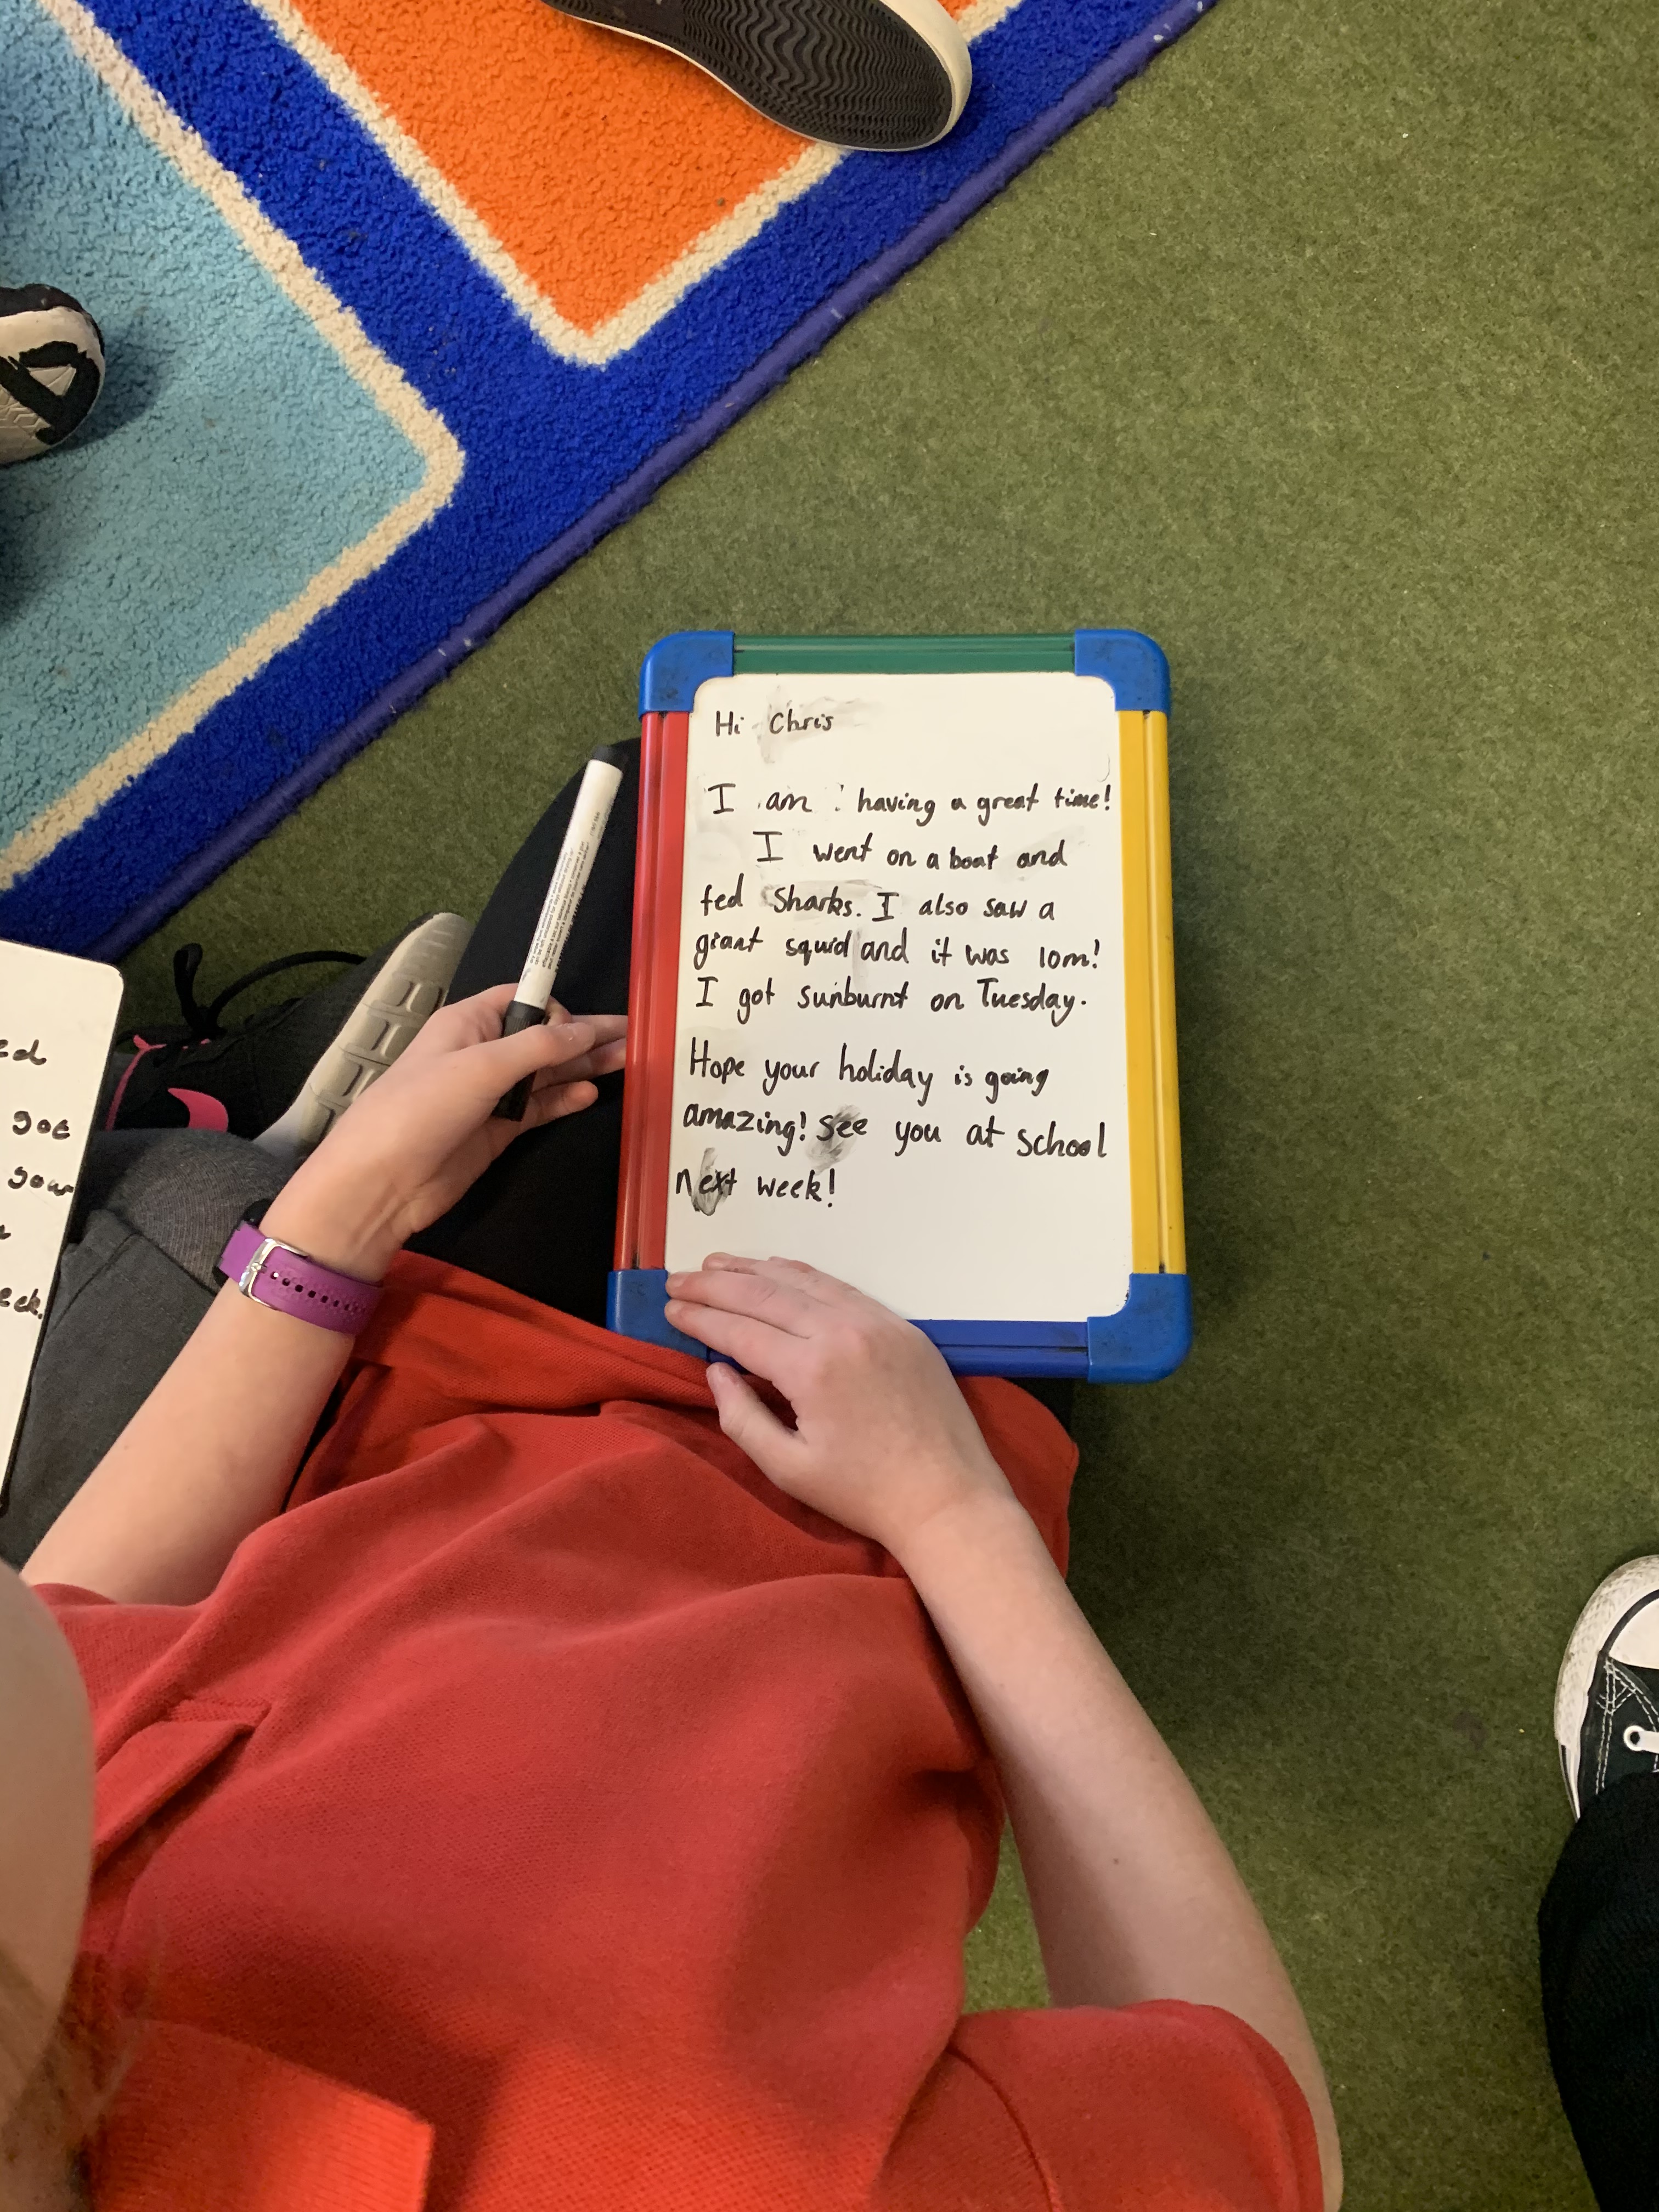 Hi Chris
I am having a great time!
I went on a boat and
fed Sharks. I also saw a
giant squid and it was 10m!
I got sunburnt on Tuesday.
Hope your holiday is going
amazing! See you at school
next week!
got